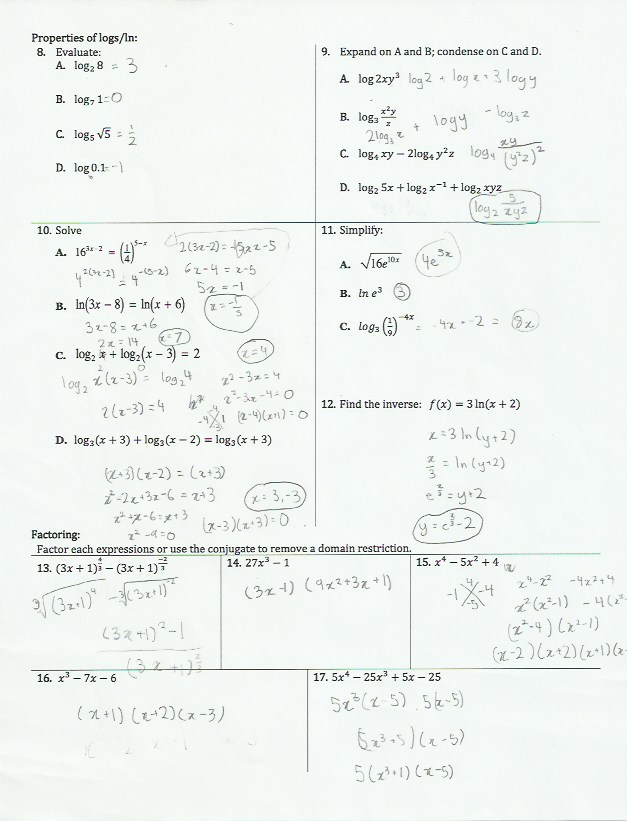 Properties of logs/ln:
8. Evaluate:
A. log₂ 8 = 3
B. log₇ 1 = 0
C. log₅ √5 = 1/2
D. log 0.1 = -1
9. Expand on A and B; condense on C and D.
A. log 2xy³ log 2 + log x + 3 log y
B. log₃ x²y/z
2log₃ x + log y - log₃ z
C. log₄ xy − 2log₄ y²z log₄ xy/(y²z)²
D. log₂ 5x + log₂ x⁻¹ + log₂ xyz
log₂ 5/xyz
10. Solve
A. 16³ˣ⁻² = (1/4)⁵⁻ˣ 2(3x-2) = -5x x-5
4^2(3x-2) = 4^-(5-x) 6x-4 = x-5
5x = -1
x = -1/5
B. ln(3x − 8) = ln(x + 6)
3x-8 = x+6
2x = 14 x=7
C. log₂ x + log₂(x − 3) = 2 x=4
log₂ x(x-3) = log₂4 x²-3x=4
2(x-3)=4 x²-3x-4=0
-4 1 (x-4)(x+1)=0
-3
D. log₃(x + 3) + log₃(x − 2) = log₃(x + 3)
(x+3)(x-2) = (x+3)
x²-2x+3x-6 = x+3 x = 3,-3
x²+x-6=x+3
x²-9=0 (x-3)(x+3)=0
11. Simplify:
A. √16e¹⁰ˣ 4e⁵ˣ
B. ln e³ 3
C. log₃(1/9)⁻⁴ˣ = -4x · -2 = 8x
12. Find the inverse: f(x) = 3 ln(x + 2)
x = 3 ln (y+2)
x/3 = ln (y+2)
e^x/3 = y+2
y = e^x/3 - 2
Factoring:
Factor each expressions or use the conjugate to remove a domain restriction.
13. (3x + 1)^4/3 − (3x + 1)^-2/3
³√(3x+1)⁴ - ³√(3x+1)⁻²
(3x+1)²-1
(3x+1)^2/3
14. 27x³ − 1
(3x-1) (9x²+3x+1)
15. x⁴ − 5x² + 4
4
-1 -4
-5
x⁴-x² -4x²+4
x²(x²-1) -4(x²
(x²-4)(x²-1)
(x-2)(x+2)(x+1)(x-
16. x³ − 7x − 6
(x+1)(x+2)(x-3)
17. 5x⁴ − 25x³ + 5x − 25
5x³(x-5) 5(x-5)
(5x³+5)(x-5)
5(x³+1)(x-5)